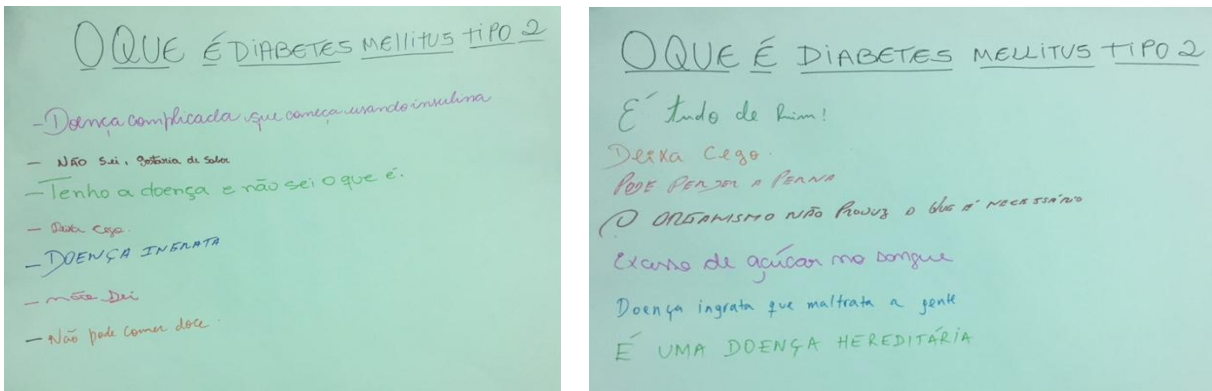 O QUE É DIABETES MELLITUS TIPO 2
- Doença complicada que começa usando insulina
- NÃO SEI, gostaria de saber
- Tenho a doença e não sei o que é.
- Deixa cego.
- DOENÇA INGRATA
- não sei
- Não pode comer doce.
O QUE É DIABETES MELLITUS TIPO 2
É tudo de Ruim!
Deixa Cego.
PODE PERDER A PERNA
O ORGANISMO NÃO PRODUZ O QUE É NECESSÁRIO
Excesso de açúcar no sangue
Doença ingrata que maltrata a gente
É UMA DOENÇA HEREDITÁRIA